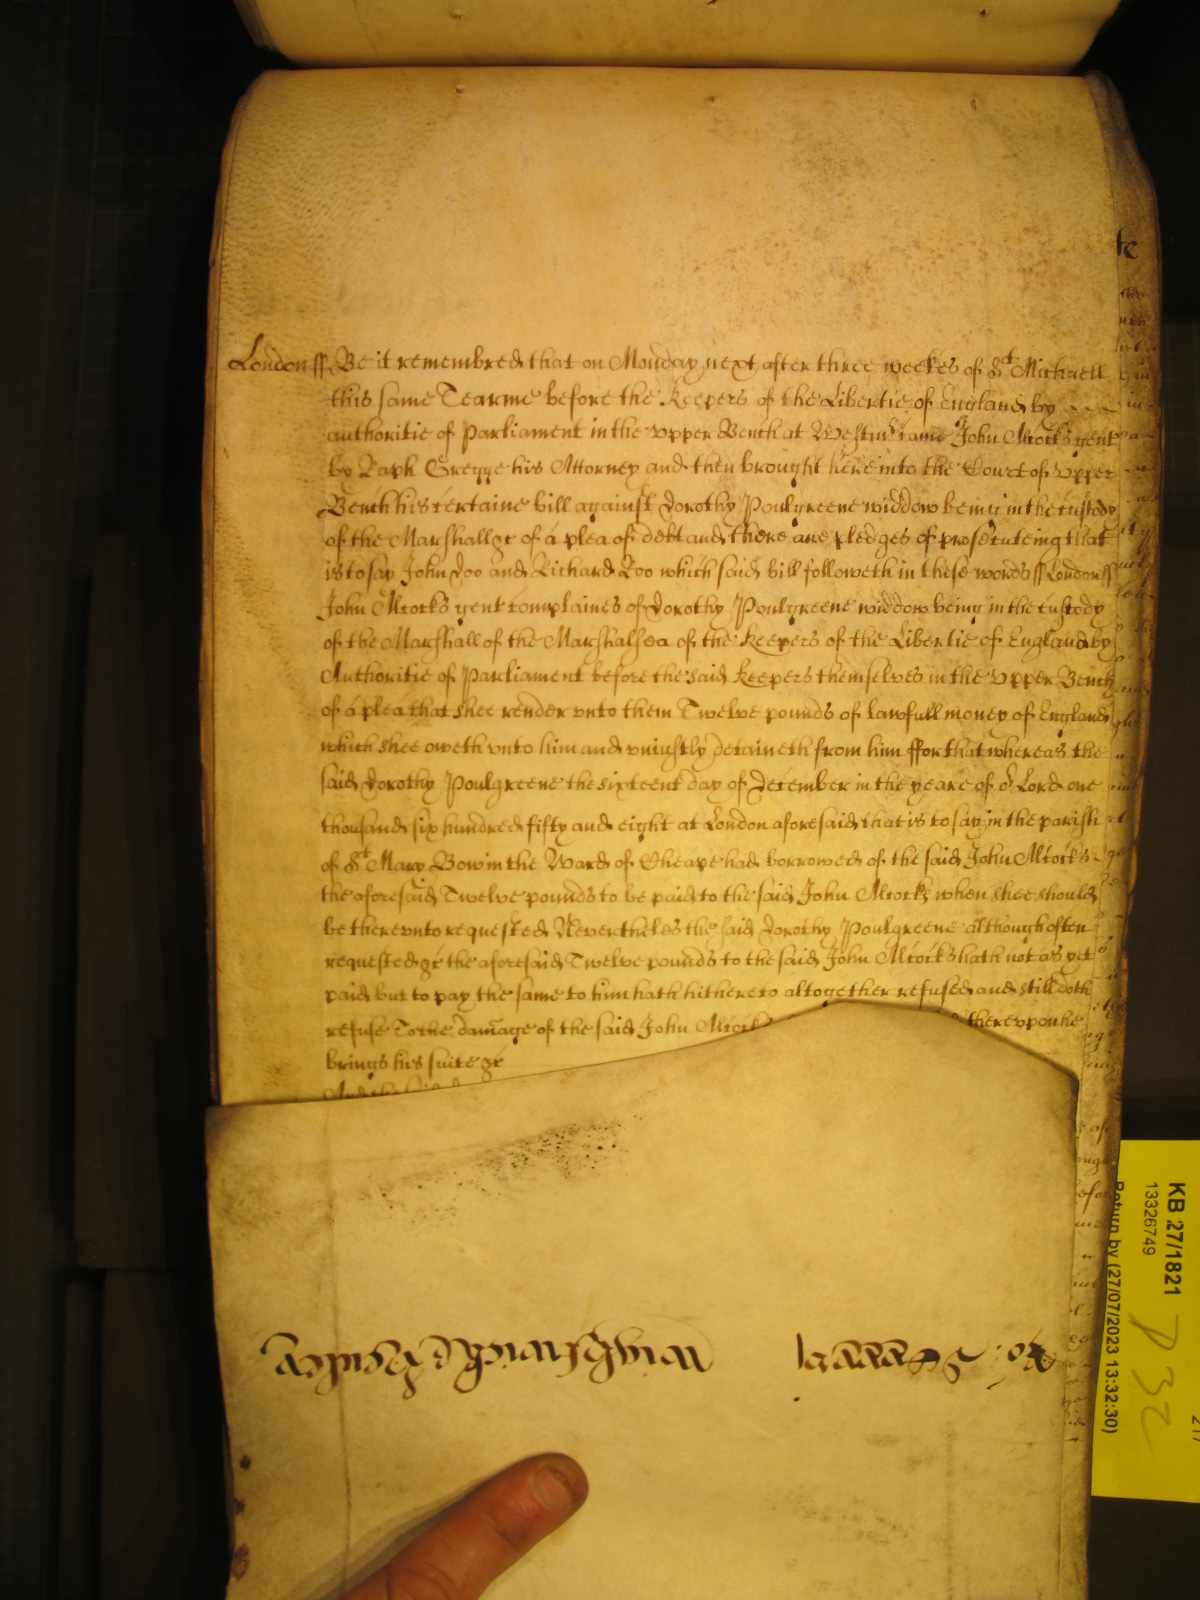 London ss Be it remembred that on Monday next after three weekes of St Michaell
this same Tearme before the Keepers of the Libertie of England by
authoritie of Parliament in the vpper Bench at Westmr came John Alcocks gent
by Raph Gregge his Attorney and then brought here into the Court of vpper
Bench his certaine bill against Dorothy Poulgreene widdow being in the custody
of the Marshall &c of a plea of debt and there are pledges of prosecuteing that
is to say John Doo and Richard Roo which said bill followeth in these words ss London ss
John Alcocks gent complaines of Dorothy Poulgreene widdow being in the custody
of the Marshall of the Marshalsea of the Keepers of the Libertie of England by
Authoritie of Parliament before the said Keepers themselves in the vpper Bench
of a plea that shee render vnto them Twelve pounds of lawfull money of England
which shee oweth vnto him and vniustly detaineth from him ffor that whereas the
said Dorothy Poulgreene the sixteent day of December in the yeare of or Lord one
thousand six hundred fifty and eight at London aforesaid that is to say in the parish
of St Mary Bow in the Ward of Cheape had borrowed of the said John Alcocks
the aforesaid Twelve pounds to be paid to the said John Alcocks when shee should
be therevnto requested Nevertheles the said Dorothy Poulgreene although often
requested &c the aforesaid Twelve pounds to the said John Alcocks hath not as yet
paid but to pay the same to him hath hithereto altogether refused and still doth
refuse To the damage of the said John Alcocks therevpon he
brings his suite &c
And the said
KB 27/1821
13326749
Return by (27/07/2023 13:32:30)
P 32
217